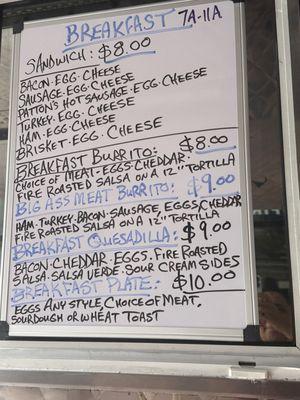 BREAKFAST 7A-11A
SANDWICH: $8.00
BACON·EGG·CHEESE
SAUSAGE·EGG·CHEESE
PATTON'S HOT SAUSAGE·EGG·CHEESE
TURKEY·EGG·CHEESE
HAM·EGG·CHEESE
BRISKET·EGG·CHEESE
BREAKFAST BURRITO: $8.00
CHOICE OF MEAT·EGGS·CHEDDAR·
FIRE ROASTED SALSA ON A 12" TORTILLA
BIG ASS MEAT BURRITO: $9.00
HAM·TURKEY·BACON·SAUSAGE·EGGS·CHEDDAR
FIRE ROASTED SALSA ON A 12" TORTILLA
BREAKFAST QUESADILLA: $9.00
BACON·CHEDDAR·EGGS·FIRE ROASTED
SALSA·SALSA VERDE·SOUR CREAM SIDES
BREAKFAST PLATE: $10.00
EGGS ANY STYLE, CHOICE OF MEAT,
SOURDOUGH OR WHEAT TOAST